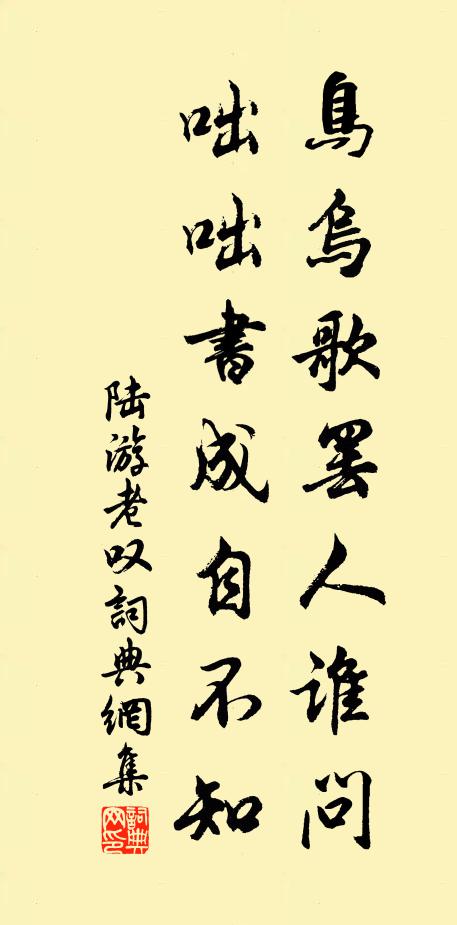 烏烏歌罢人谁問
咄咄書成自不知
陆游老叹詞典網集
詞典网印